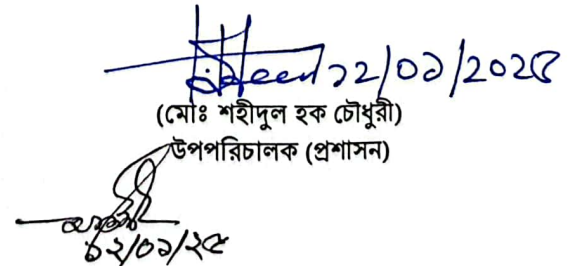 ১২/০১/২০২৫
(মোঃ শহীদুল হক চৌধুরী)
উপপরিচালক (প্রশাসন)
১২/০১/২৫